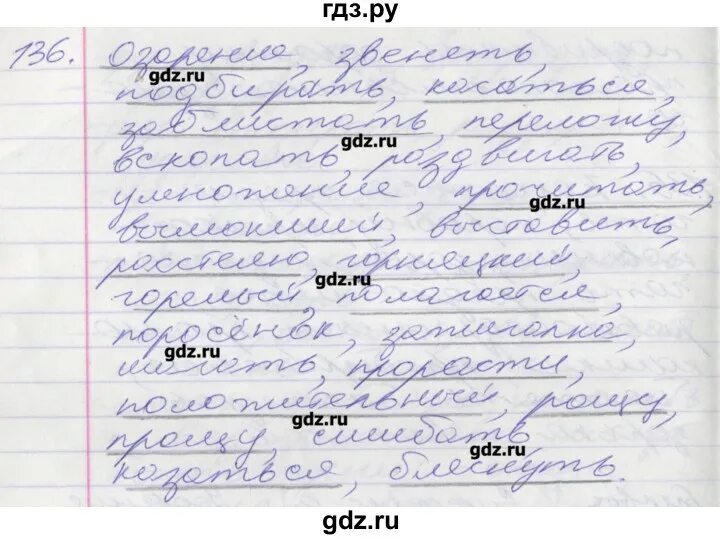 гдз.ру
136. Озарение, звенеть,
gdz.ru
подбирать, касаться,
заблистать, переложу,
gdz.ru
вскопать, раздвигать,
умножение, прочитать,
gdz.ru
вымокший, выставить,
расстелю, горняцкий,
gdz.ru
горелый, полагается,
поросёнок, зажигалка,
gdz.ru
шагать, прорасти,
положительный, ращу,
gdz.ru
прощу, сшибать
gdz.ru
казаться, блеснуть.
gdz.ru